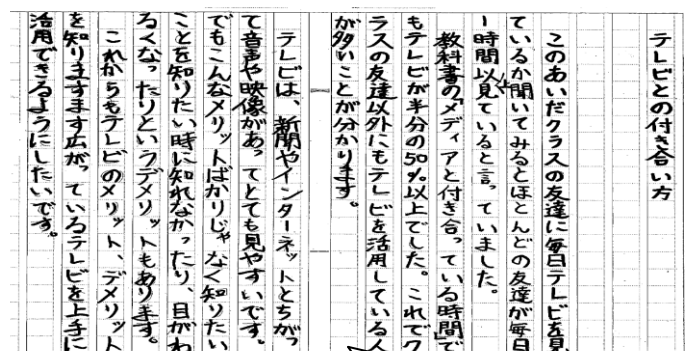 テレビとの付き合い方
このあいだクラスの友達に毎日テレビを見
ているか聞いてみるとほとんどの友達が毎日
一時間以上見ていると言っていました。
教科書の「メディアと付き合っている時間」で
もテレビが半分の50%以上でした。これでク
ラスの友達以外にもテレビを活用している人
が多いことが分かります。
テレビは、新聞やインターネットとちがっ
て音声や映像があってとても見やすいです。
でもこんなメリットばかりじゃなく知りたい
ことを知りたい時に知れなかったり、目がわ
るくなったりというデメリットもあります。
これからもテレビのメリット、デメリット
を知りますます広がっているテレビを上手に
活用できるようにしたいです。